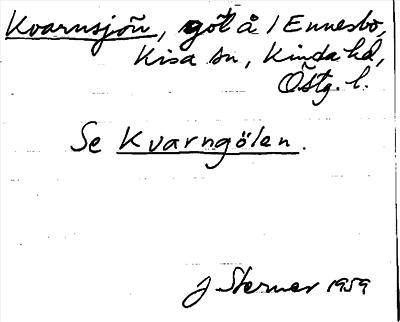 Kvarnsjön, göl å / Ennesbo,
Kisa sn, Kinda hd,
Östg. l.
Se Kvarngölen.
J Sterner 1959